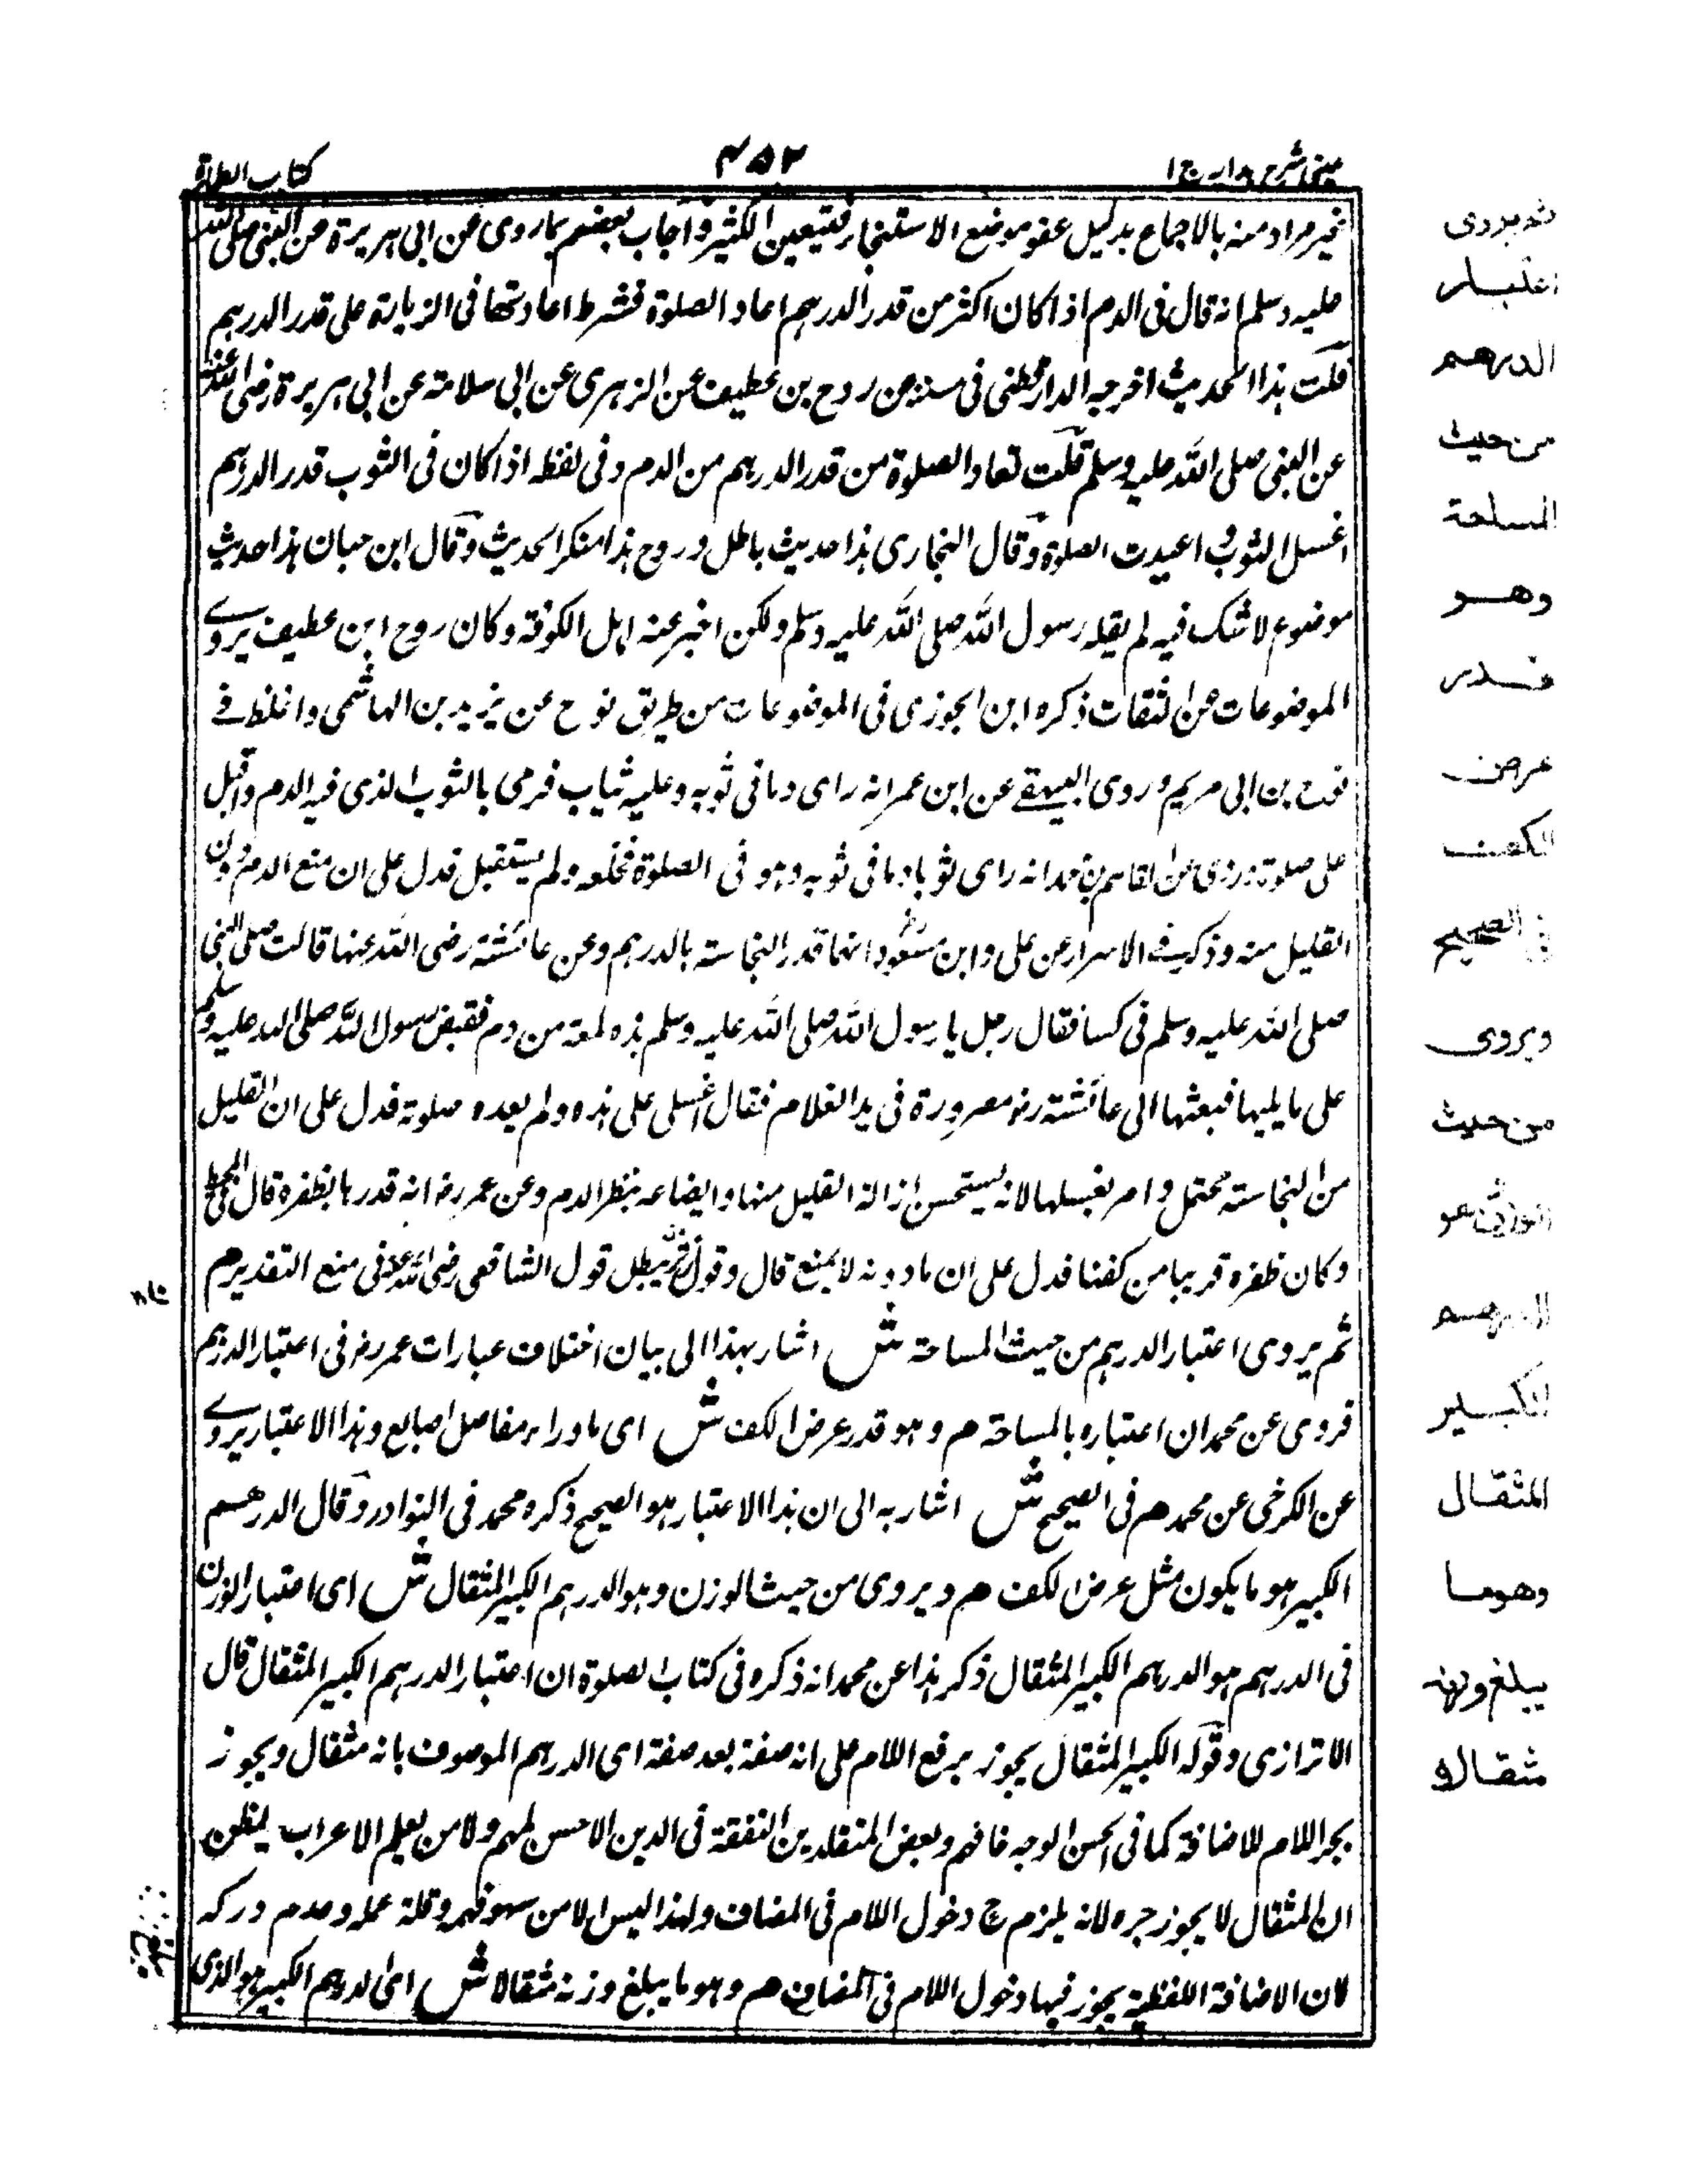 عینی شرح ہدایہ ج ا
۴۵۲
کتاب الطہارة
غیر مراد منه بالاجماع بدلیل عفو موضع الاستنجاء فتیعین الکثیر و اجاب بعضهم بما روی عن ابی هریرة عن النبی صلی الله
علیه وسلم انه قال فی الدم اذا کان اکثر من قدر الدرهم اعاد الصلوة فشرط اعادتها فی الزیادة علی قدر الدرهم
قلت هذا الحدیث اخرجه الدارقطنی فی سننه عن روح بن غطیف عن الزهری عن ابی سلامة عن ابی هریرة رضی الله عنه
عن النبی صلی الله علیه وسلم قلت تعاد الصلوة من قدر الدرهم من الدم و فی لفظ اذا کان فی الثوب قدر الدرهم
غسل الثوب و اعیدت الصلوة و قال البخاری هذا حدیث باطل و روح هذا منکر الحدیث و قال ابن حبان هذا حدیث
موضوع لا شک فیه لم یقله رسول الله صلی الله علیه وسلم ولکن اخبر عنه اهل الکوفة و کان روح ابن غطیف یروے
الموضوعات عن الثقات ذکره ابن الجوزی فی الموضوعات من طریق نوح عن یزید بن الهاشمی و اغلظ فے
نوح بن ابی مریم و روی البیهقے عن ابن عمر انه رای دما فی ثوبه و علیه ثیاب فرمی بالثوب الذی فیه الدم و اقبل
علی صلوته و روی عن القاسم بن محمد انه رای ثوبا دما فی ثوبه و هو فی الصلوة فخلعه و لم یستقبل فدل علی ان منع الدم دون
القلیل منه و ذکر فے الاسرار عن علی و ابن مسعود انها قدر النجاسة بالدرهم و عن عائشة رضی الله عنها قالت صلی النبی
صلی الله علیه وسلم فی کسا فقال رجل یا رسول الله صلی الله علیه وسلم هذه لمعة من دم فقبض رسول الله صلی الله علیه وسلم
علی ما یلیها فبعثها الی عائشة رض مصرورة فی ید الغلام فقال اغسلی علی هذه و لم یعده صلوته فدل علی ان القلیل
من النجاسة محتمل و امر بغسلها لانه یستحسن ازالة القلیل منها و ایضا عه بنظر الدم و عن عمر رض انه قدرها بظفره قال
و کان ظفره قریبا من کفنا فدل علی ان ما دونه لا یمنع قال و قول عمر یبطل قول الشافعی رضی الله عنه فی منع التقدیر م
ثم یروی اعتبار الدرهم من حیث المساحة ش اشار بهذا الی بیان اختلاف عبارات عمر رض فی اعتبار الدرهم
فروی عن محمد ان اعتباره بالمساحة م و هو قدر عرض الکف ش ای ما وراء مفاصل اصابع و هذا الاعتبار یروے
عن الکرخی عن محمد م فی الصحیح ش اشار به الی ان هذا الاعتبار هو الصحیح ذکره محمد فی النوادر و قال الدرهم
الکبیر هو ما یکون مثل عرض الکف م و یروی من حیث الوزن و هو الدرهم الکبیر المثقال ش ای اعتبار الوزن
فی الدرهم هو الدرهم الکبیر المثقال ذکر هذا عن محمد انه ذکره فی کتاب الصلوة ان اعتبار الدرهم الکبیر المثقال قال
الاترازی و قوله الکبیر المثقال یجوز برفع اللام علی انه صفة بعد صفة ای الدرهم الموصوف بانه مثقال و یجوز
بجر اللام للاضافة کما فی الحسن الوجه فافهم و بعض المتقلدین التفقة فی الدین الاحسن لهم و لا من یعلم الاعراب یظن
ان المثقال لا یجوز جره لانه یلزم ح دخول اللام فی المضاف و لهذا لیس الا من سهو فهمه و قلة عمله و عدم درکه
لان الاضافة اللفظیة یجوز فیها دخول اللام فی المضاف م و هو ما یبلغ وزنه مثقالا ش ای الدرهم الکبیر هو الذی
ثم یروی
اعتبار
الدرهم
من حیث
المساحة
وهو
قدر
عرض
الکف
فی الصحیح
ویروی
من حیث
الوزن وهو
الدرهم
الکبیر
المثقال
وهو ما
یبلغ وزنه
مثقالا